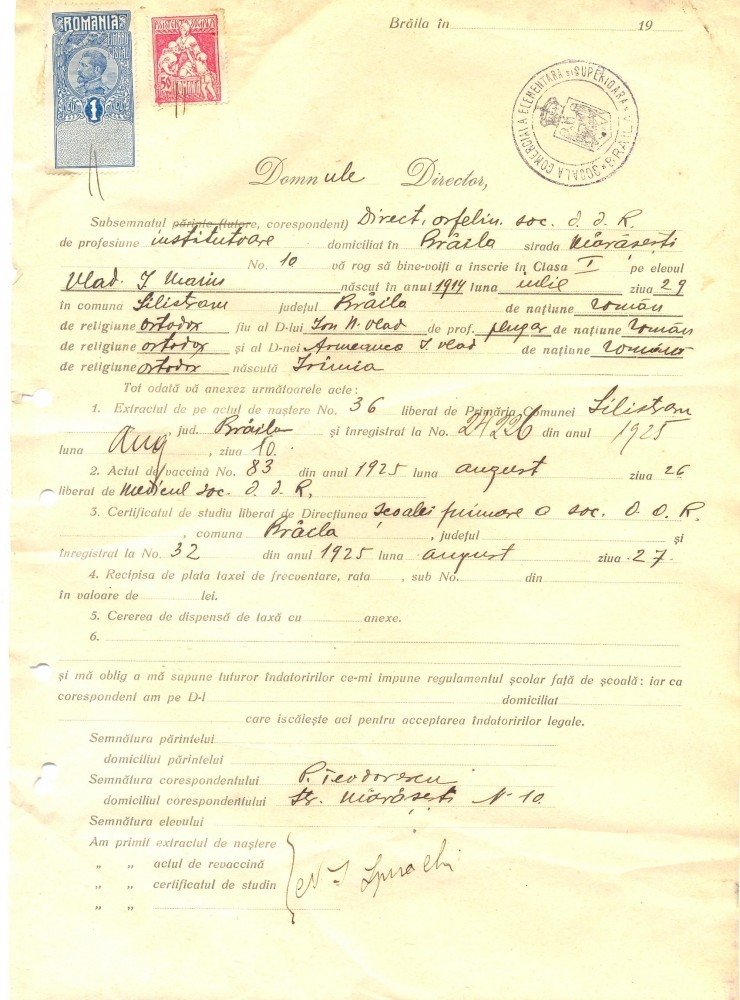 ROMANIA
TIMBRU FISCAL
1
50
Brăila în 19
SCOALA COMERCIALA ELEMENTARA SI SUPERIOARA BRAILA
Domnule Director,
Subsemnatul părinte (tutore, corespondent) Direct. orfelin. soc. O. O. R.
de profesiune institutoare domiciliat în Brăila strada Mărăsești
No. 10 vă rog să bine-voiți a înscrie în Clasa I pe elevul
Vlad. I Marin născut în anul 1914 luna iulie ziua 29
în comuna Silistraru județul Brăila de națiune român
de religiune ortodox fiu al D-lui Ion N. Vlad de prof. plugar de națiune român
de religiune ortodox și al D-nei I. Vlad de națiune română
de religiune ortodox născulă Irimia
Tot odată vă anexez următoarele acte:
1. Extractul de pe actul de naștere No. 36 liberat de Primăria Comunei Silistraru
, jud. Brăila și înregistrat la No. 24226 din anul 1925
luna Aug , ziua 10.
2. Actul de vaccină No. 83 din anul 1925 luna august ziua 26
liberat de medicul soc. O. O. R.
3. Certificatul de studiu liberat de Direcțiunea școalei primare a soc. O. O. R.
, comuna Brăila , județul și
înregistrat la No. 32 din anul 1925 luna august ziua 27.
4. Recipisa de plata taxei de frecventare, rata , sub No. din
în valoare de lei.
5. Cererea de dispensă de taxă cu anexe.
6.
și mă oblig a mă supune tuturor îndatoririlor ce-mi impune regulamentul școlar față de școală: iar ca
corespondent am pe D-l domiciliat
care iscălește aci pentru acceptarea îndatoririlor legale.
Semnătura părintelui
domiciliul părintelui
Semnătura corespondentului P. Teodorescu
domiciliul corespondentului Str. Mărăsești N-10
Semnătura elevului
Am primit extractul de naștere
„ „ actul de revaccină
„ „ certificatul de studin
„ „